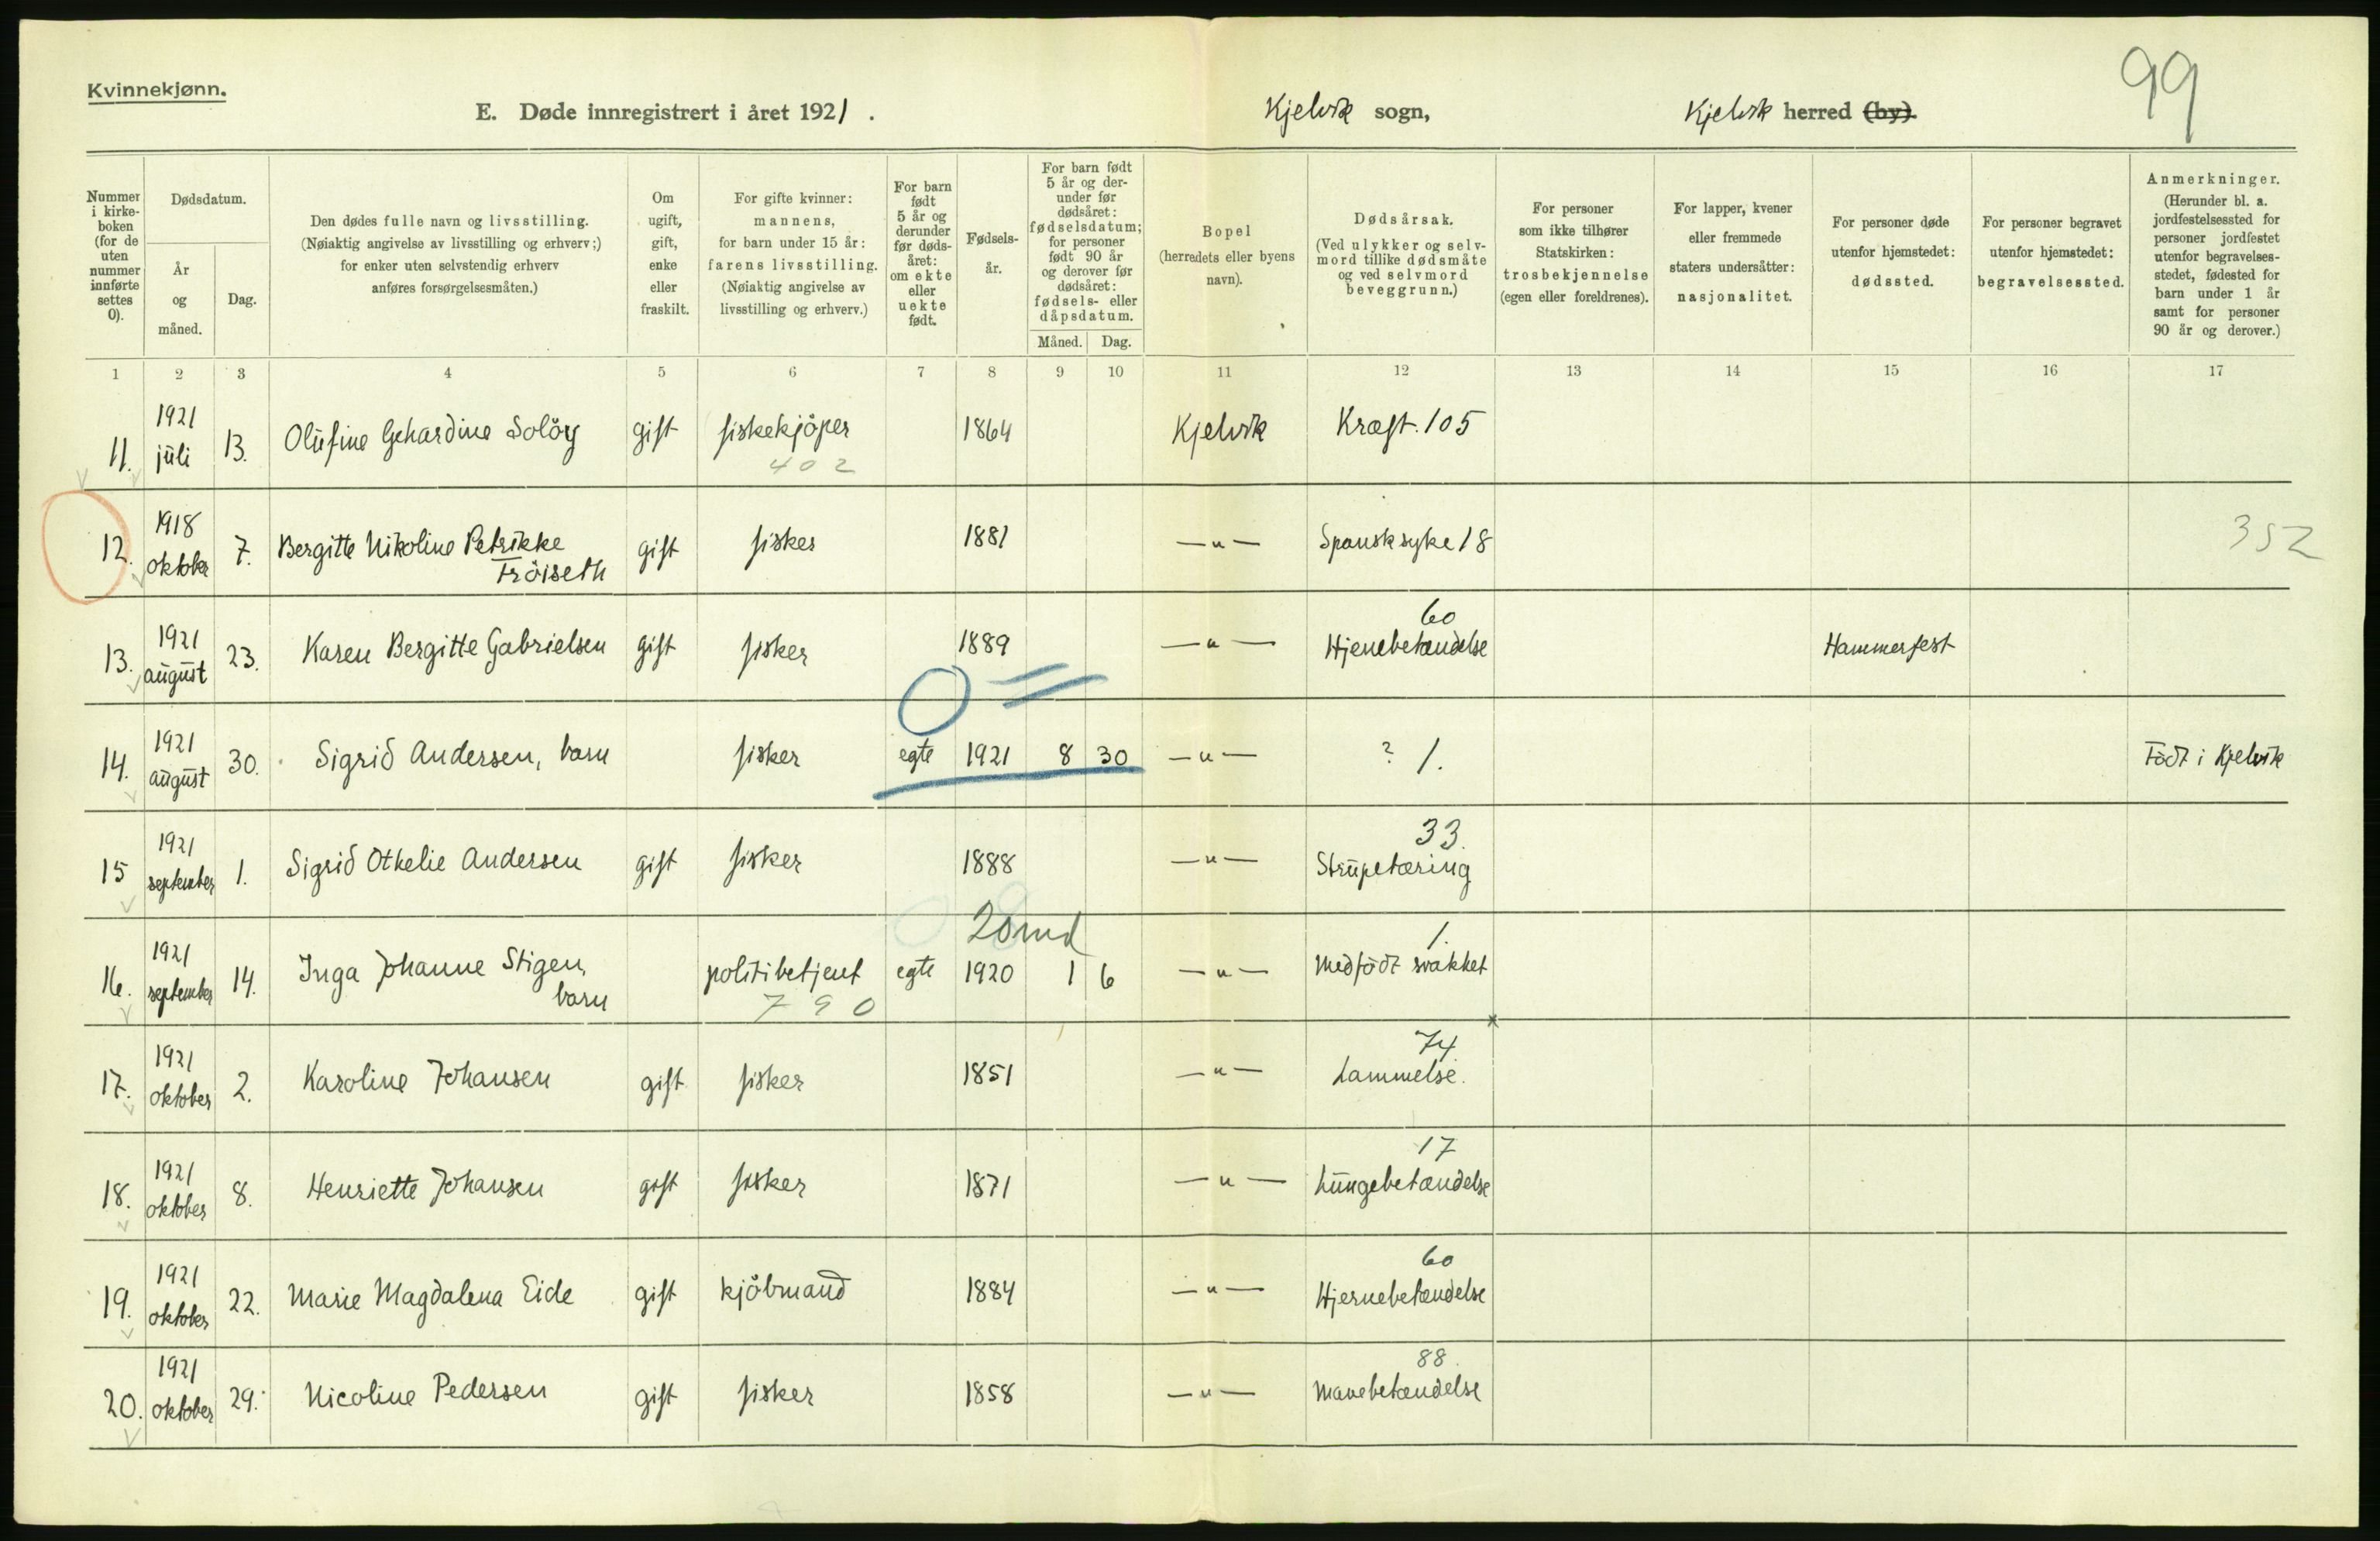 99
Kvinnekjønn.
E. Døde innregistrert i året 1921. Kjelvik sogn, Kjelvik herred (by).
Nummer i kirke- boken (for de uten nummer innførte settes 0).
Dødsdatum.
År og måned.
Dag.
Den dødes fulle navn og livsstilling.
(Nøiaktig angivelse av livsstilling og erhverv;)
for enker uten selvstendig erhverv
anføres forsørgelsesmåten.)
Om ugift, gift, enke eller fraskilt.
For gifte kvinner:
mannens,
for barn under 15 år:
farens livsstilling.
(Nøiaktig angivelse av
livsstilling og erhverv.)
For barn født 5 år og derunder før døds- året: om ekte eller uekte født.
Fødsels- år.
For barn født 5 år og der- under før dødsåret: fødselsdatum; for personer født 90 år og derover før dødsåret: fødsels- eller dåpsdatum.
Måned. Dag.
Bopel
(herredets eller byens
navn).
Dødsårsak.
(Ved ulykker og selv-
mord tillike dødsmåte
og ved selvmord
beveggrunn.)
For personer
som ikke tilhører
Statskirken:
trosbekjennelse
(egen eller foreldrenes).
For lapper, kvener
eller fremmede
staters undersåtter:
nasjonalitet.
For personer døde
utenfor hjemstedet:
dødssted.
For personer begravet
utenfor hjemstedet:
begravelsessted.
Anmerkninger.
(Herunder bl. a.
jordfestelsessted for
personer jordfestet
utenfor begravelses-
stedet, fødested for
barn under 1 år
samt for personer
90 år og derover.)
1 2 3 4 5 6 7 8 9 10 11 12 13 14 15 16 17
11. 1921 juli 13. Olufine Gehardine Solöy gift fiskekjöper 1864 Kjelvik Kræft. 105
402
12. 1918 oktober 7. Bergitte Nikoline Petrikke Tröiseth gift fisker 1881 —"— Spansksyke 18 352
60
13. 1921 august 23. Karen Bergitte Gabrielsen gift fisker 1889 —"— Hjenebetændelse Hammerfest
0 =
14. 1921 august 30. Sigrid Andersen, barn fisker egte 1921 8 30 —"— ? 1. Födt i Kjelvik
33.
15 1921 september 1. Sigrid Othelie Andersen gift fisker 1888 —"— Strupetæring
20 md 1.
16. 1921 september 14. Inga Johanne Stigen, barn politibetjent egte 1920 1 6 —"— Medfödt svakhet
790
74
17. 1921 oktober 2. Karoline Johansen gift fisker 1851 —"— Lammelse.
17
18. 1921 oktober 8. Henriette Johansen gift fisker 1871 —"— Lungebetændelse
60
19. 1921 oktober 22. Marie Magdalena Eide gift kjöbmand 1884 —"— Hjernebetændelse
88.
20. 1921 oktober 29. Nicoline Pedersen gift fisker 1858 —"— Mavebetændelse